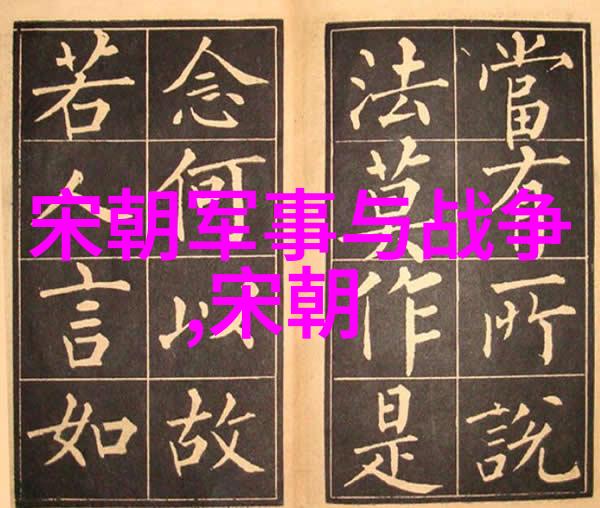 宋朝军事与战争
,宋朝
當有所說
法莫作是
念何以故
若人言如